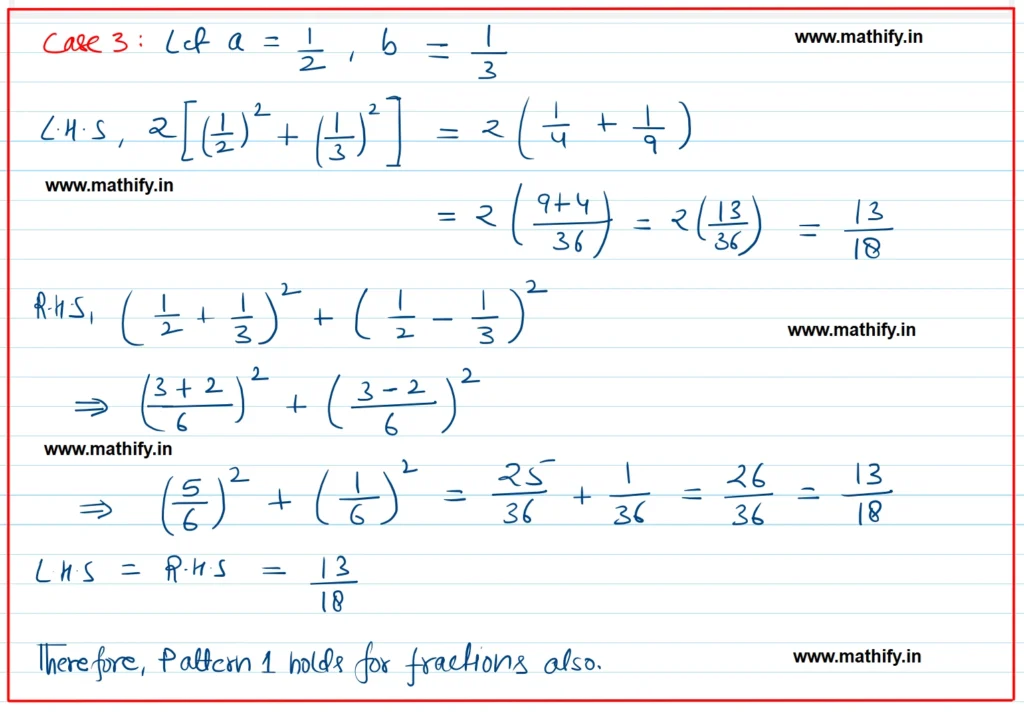 Case 3 : Let a = 1/2 , b = 1/3
www.mathify.in
L.H.S, 2[(1/2)² + (1/3)²] = 2(1/4 + 1/9)
www.mathify.in
= 2((9+4)/36) = 2(13/36) = 13/18
R.H.S, (1/2 + 1/3)² + (1/2 - 1/3)²
www.mathify.in
⇒ ((3+2)/6)² + ((3-2)/6)²
www.mathify.in
⇒ (5/6)² + (1/6)² = 25/36 + 1/36 = 26/36 = 13/18
L.H.S = R.H.S = 13/18
Therefore, Pattern 1 holds for fractions also.
www.mathify.in